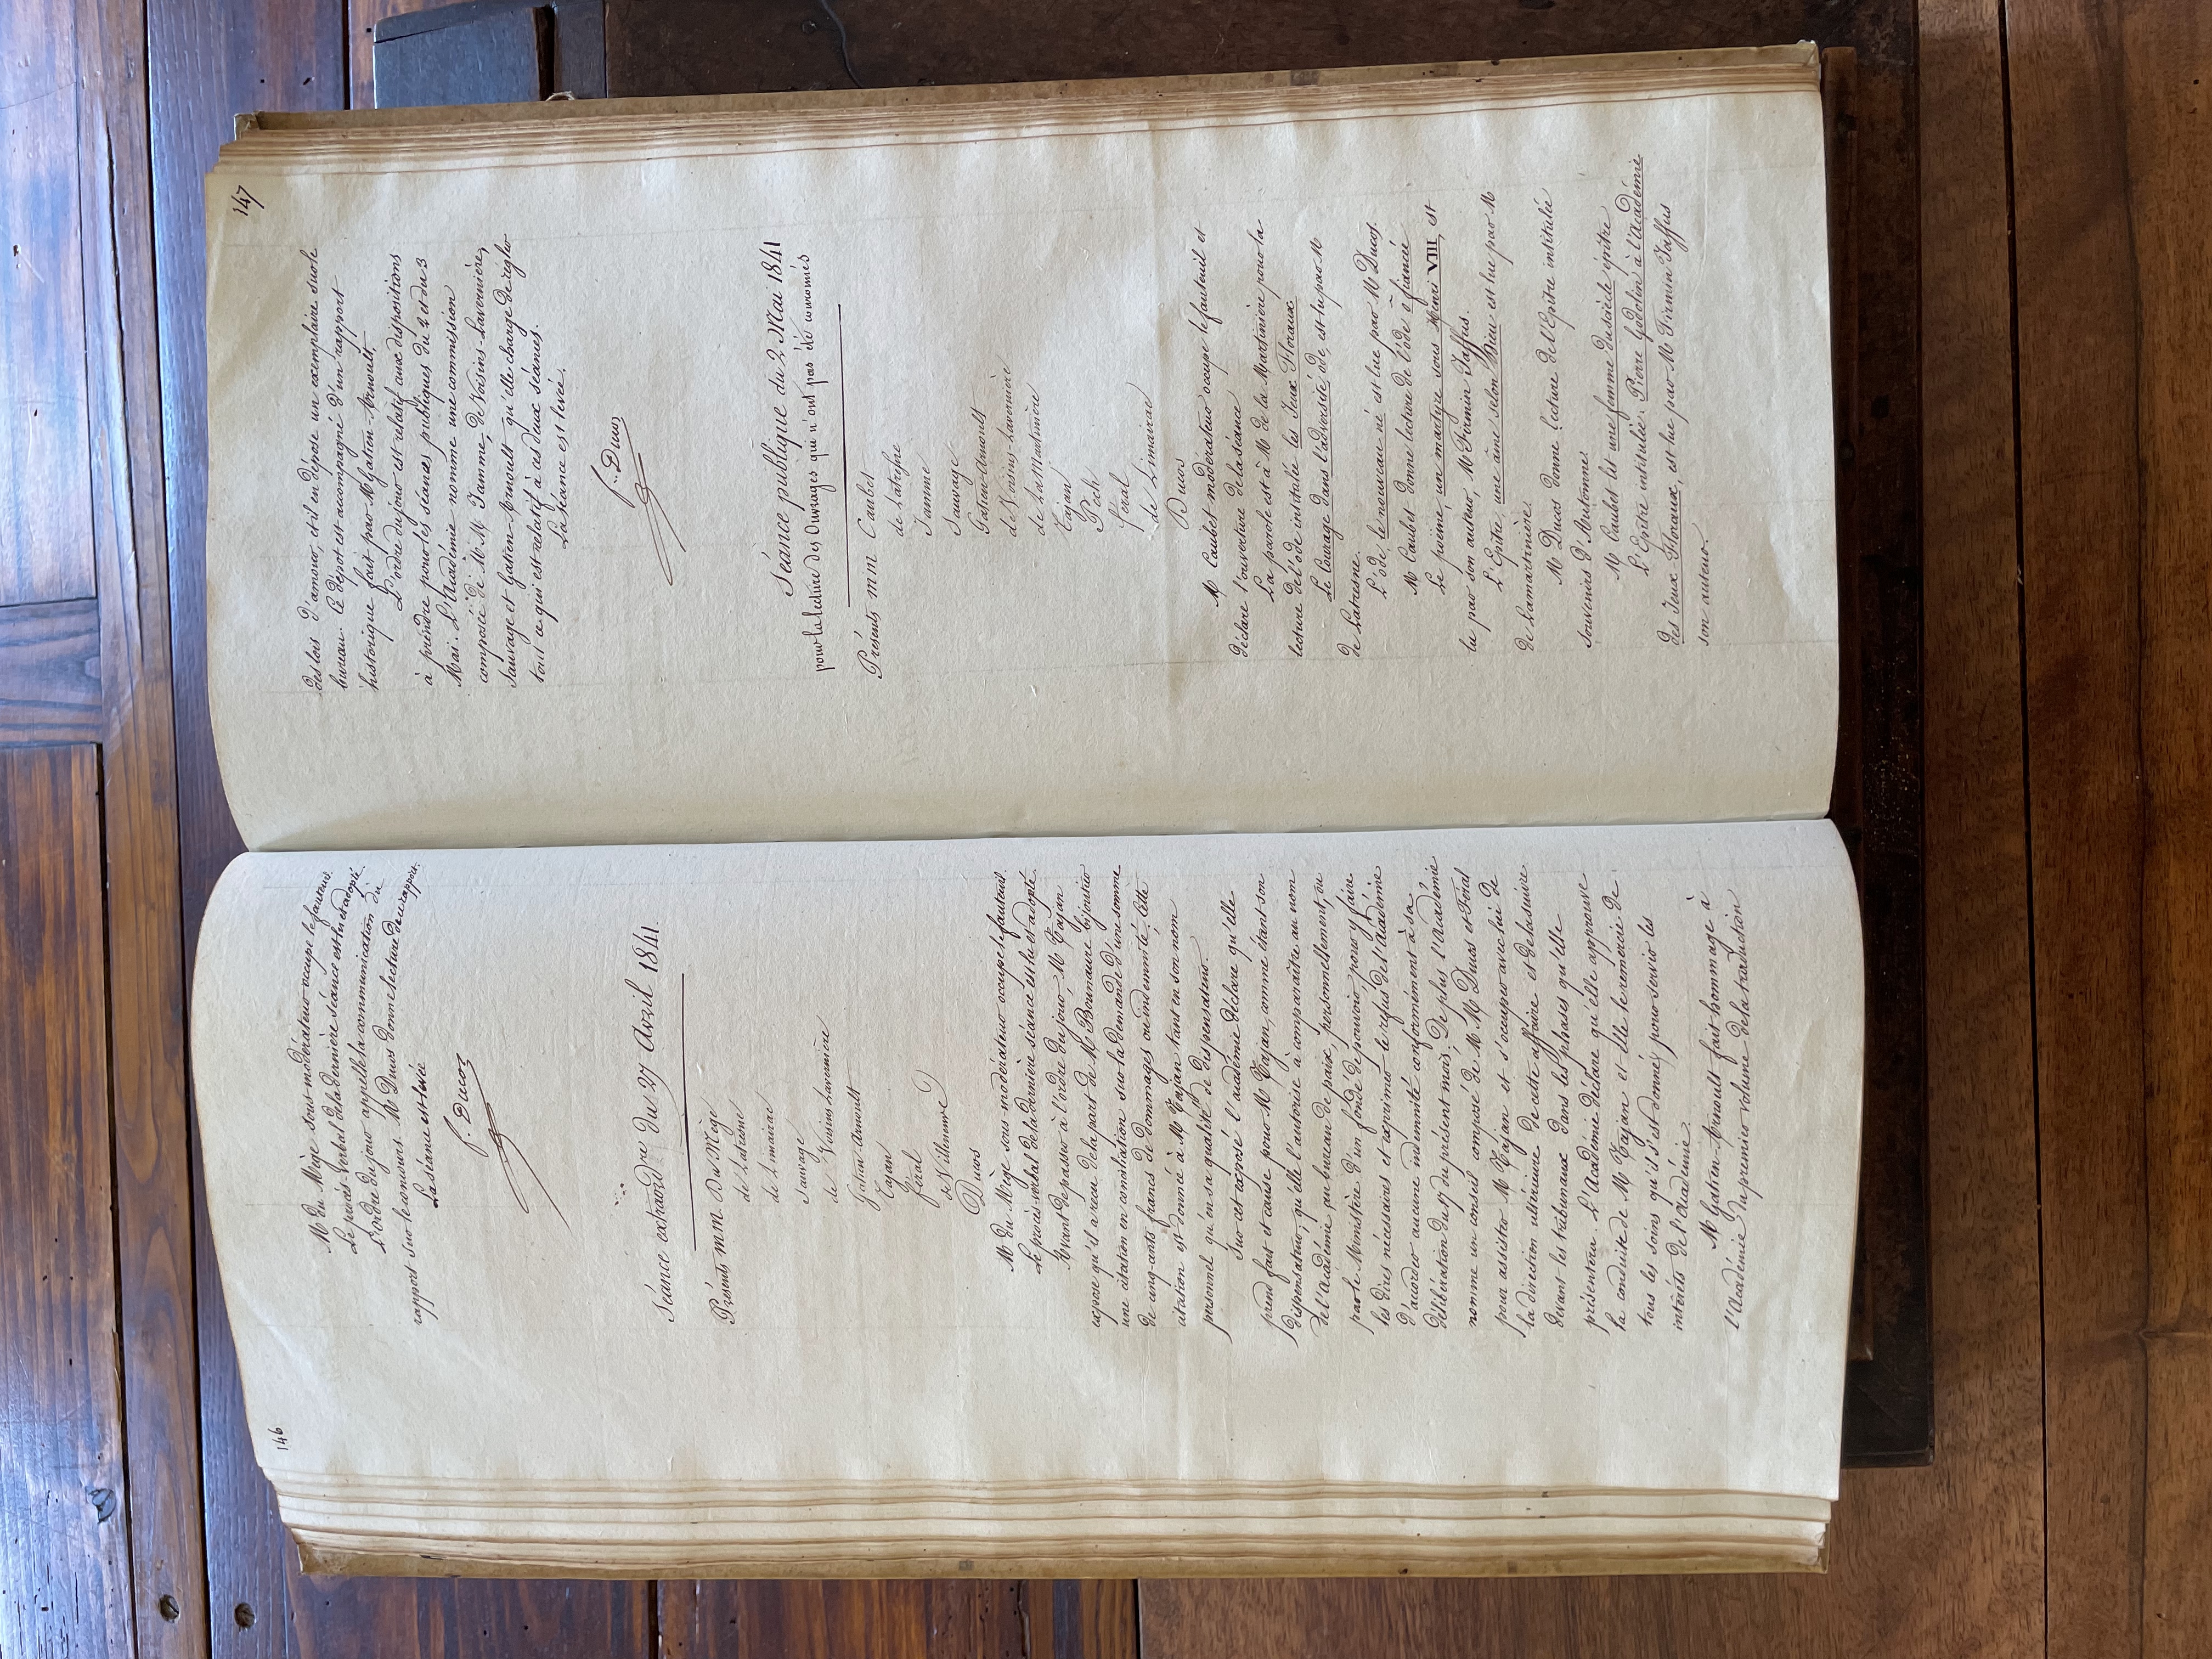 146
M du Mège sous-modérateur occupe le fauteuil.
Le procès-verbal de la dernière séance est lu et adopté.
L'ordre du jour appelle la communication du
rapport sur le concours. M Ducos donne lecture de ce rapport.
La séance est levée
f. Ducos
Séance extraordre du 27 Avril 1841.
Présents mm. Du Mège
de Latresne
de Limairac
Sauvage
de Voisins Lavernière
Gatien-Arnoult
Tajan
féral
de Villeneuve
Ducos
M du Mège sous-modérateur occupe le fauteuil.
Le procès-verbal de la dernière séance est lu et adopté.
Avant de passer à l'ordre du jour, M Tajan
expose qu'il a reçu de la part de M Bonnaure bijoutier
une citation en conciliation sur la demande d'une somme
de cinq-cents francs de dommages ou indemnité. Cette
citation est donnée à M Tajan tant en son nom
personnel qu'en sa qualité de dispensateur.
Sur cet exposé l'académie déclare qu'elle
prend fait et cause pour M Tajan, comme étant son
dispensateur, qu'elle l'autorise à comparaître au nom
de l'académie, au bureau de paix, personnellement, ou
par le Ministère d'un fondé de pouvoir, pour y faire
les dires nécessaires et exprimer le refus de l'académie
d'accorder aucune indemnité conformément à sa
délibération du 17 du présent mois. De plus l'Académie
nomme un conseil composé de M M Ducos et Féral
pour assister M Tajan et s'occuper avec lui de
la direction ultérieure de cette affaire et de la suivre
devant les tribunaux dans les phases qu'elle
présentera. L'Académie déclare qu'elle approuve
la conduite de M Tajan et elle le remercie de
tous les soins qu'il s'est donnés pour servir les
intérêts de l'académie.
M Gatien-Arnoult fait hommage à
l'Académie du premier volume de la traduction
147
des lois d'amour, et il en dépose un exemplaire sur le
bureau. Ce dépôt est accompagné d'un rapport
historique fait par M Gatien-Arnoult.
L'ordre du jour est relatif aux dispositions
à prendre pour les séances publiques du 2 et du 3
Mai. L'Académie nomme une commission
composée de M M Jamme, de Voisins-Lavernière,
Sauvage et Gatien-Arnoult qu'elle charge de régler
tout ce qui est relatif à ces deux séances.
La séance est levée.
f. Ducos
Séance publique du 2 Mai 1841
pour la lecture des Ouvrages qui n'ont pas été couronnés
Présents mm Caubet
de Latresne
Jamme
Sauvage
Gatien-Arnoult
de Voisins-Lavernière
de la Martinière
Tajan
Pech
féral
de Limairac
Ducos
M Caubet modérateur occupe le fauteuil et
déclare l'ouverture de la séance
La parole est à M de la Martinière pour la
lecture de l'ode institulée les Jeux Floraux
Le Courage dans l'adversité ode, est lu par M
de Latresne.
L'ode, le nouveau né est lue par M Ducos.
M Caubet donne lecture de l'ode la fiancée
Le poème, un martyre sous Henri VIII, est
lu par son auteur, M Firmin Jaffus.
L'Epître une âme selon Dieu est lue par M
de Lamartinière.
M Ducos donne lecture de l'Epître institulée
Souvenirs d'Automne.
M Caubet lit une femme du siècle épître
L'Epître institulée. Pierre Godolin à l'Académie
des Jeux Floraux, est lue par M Firmin Jaffus
son auteur.